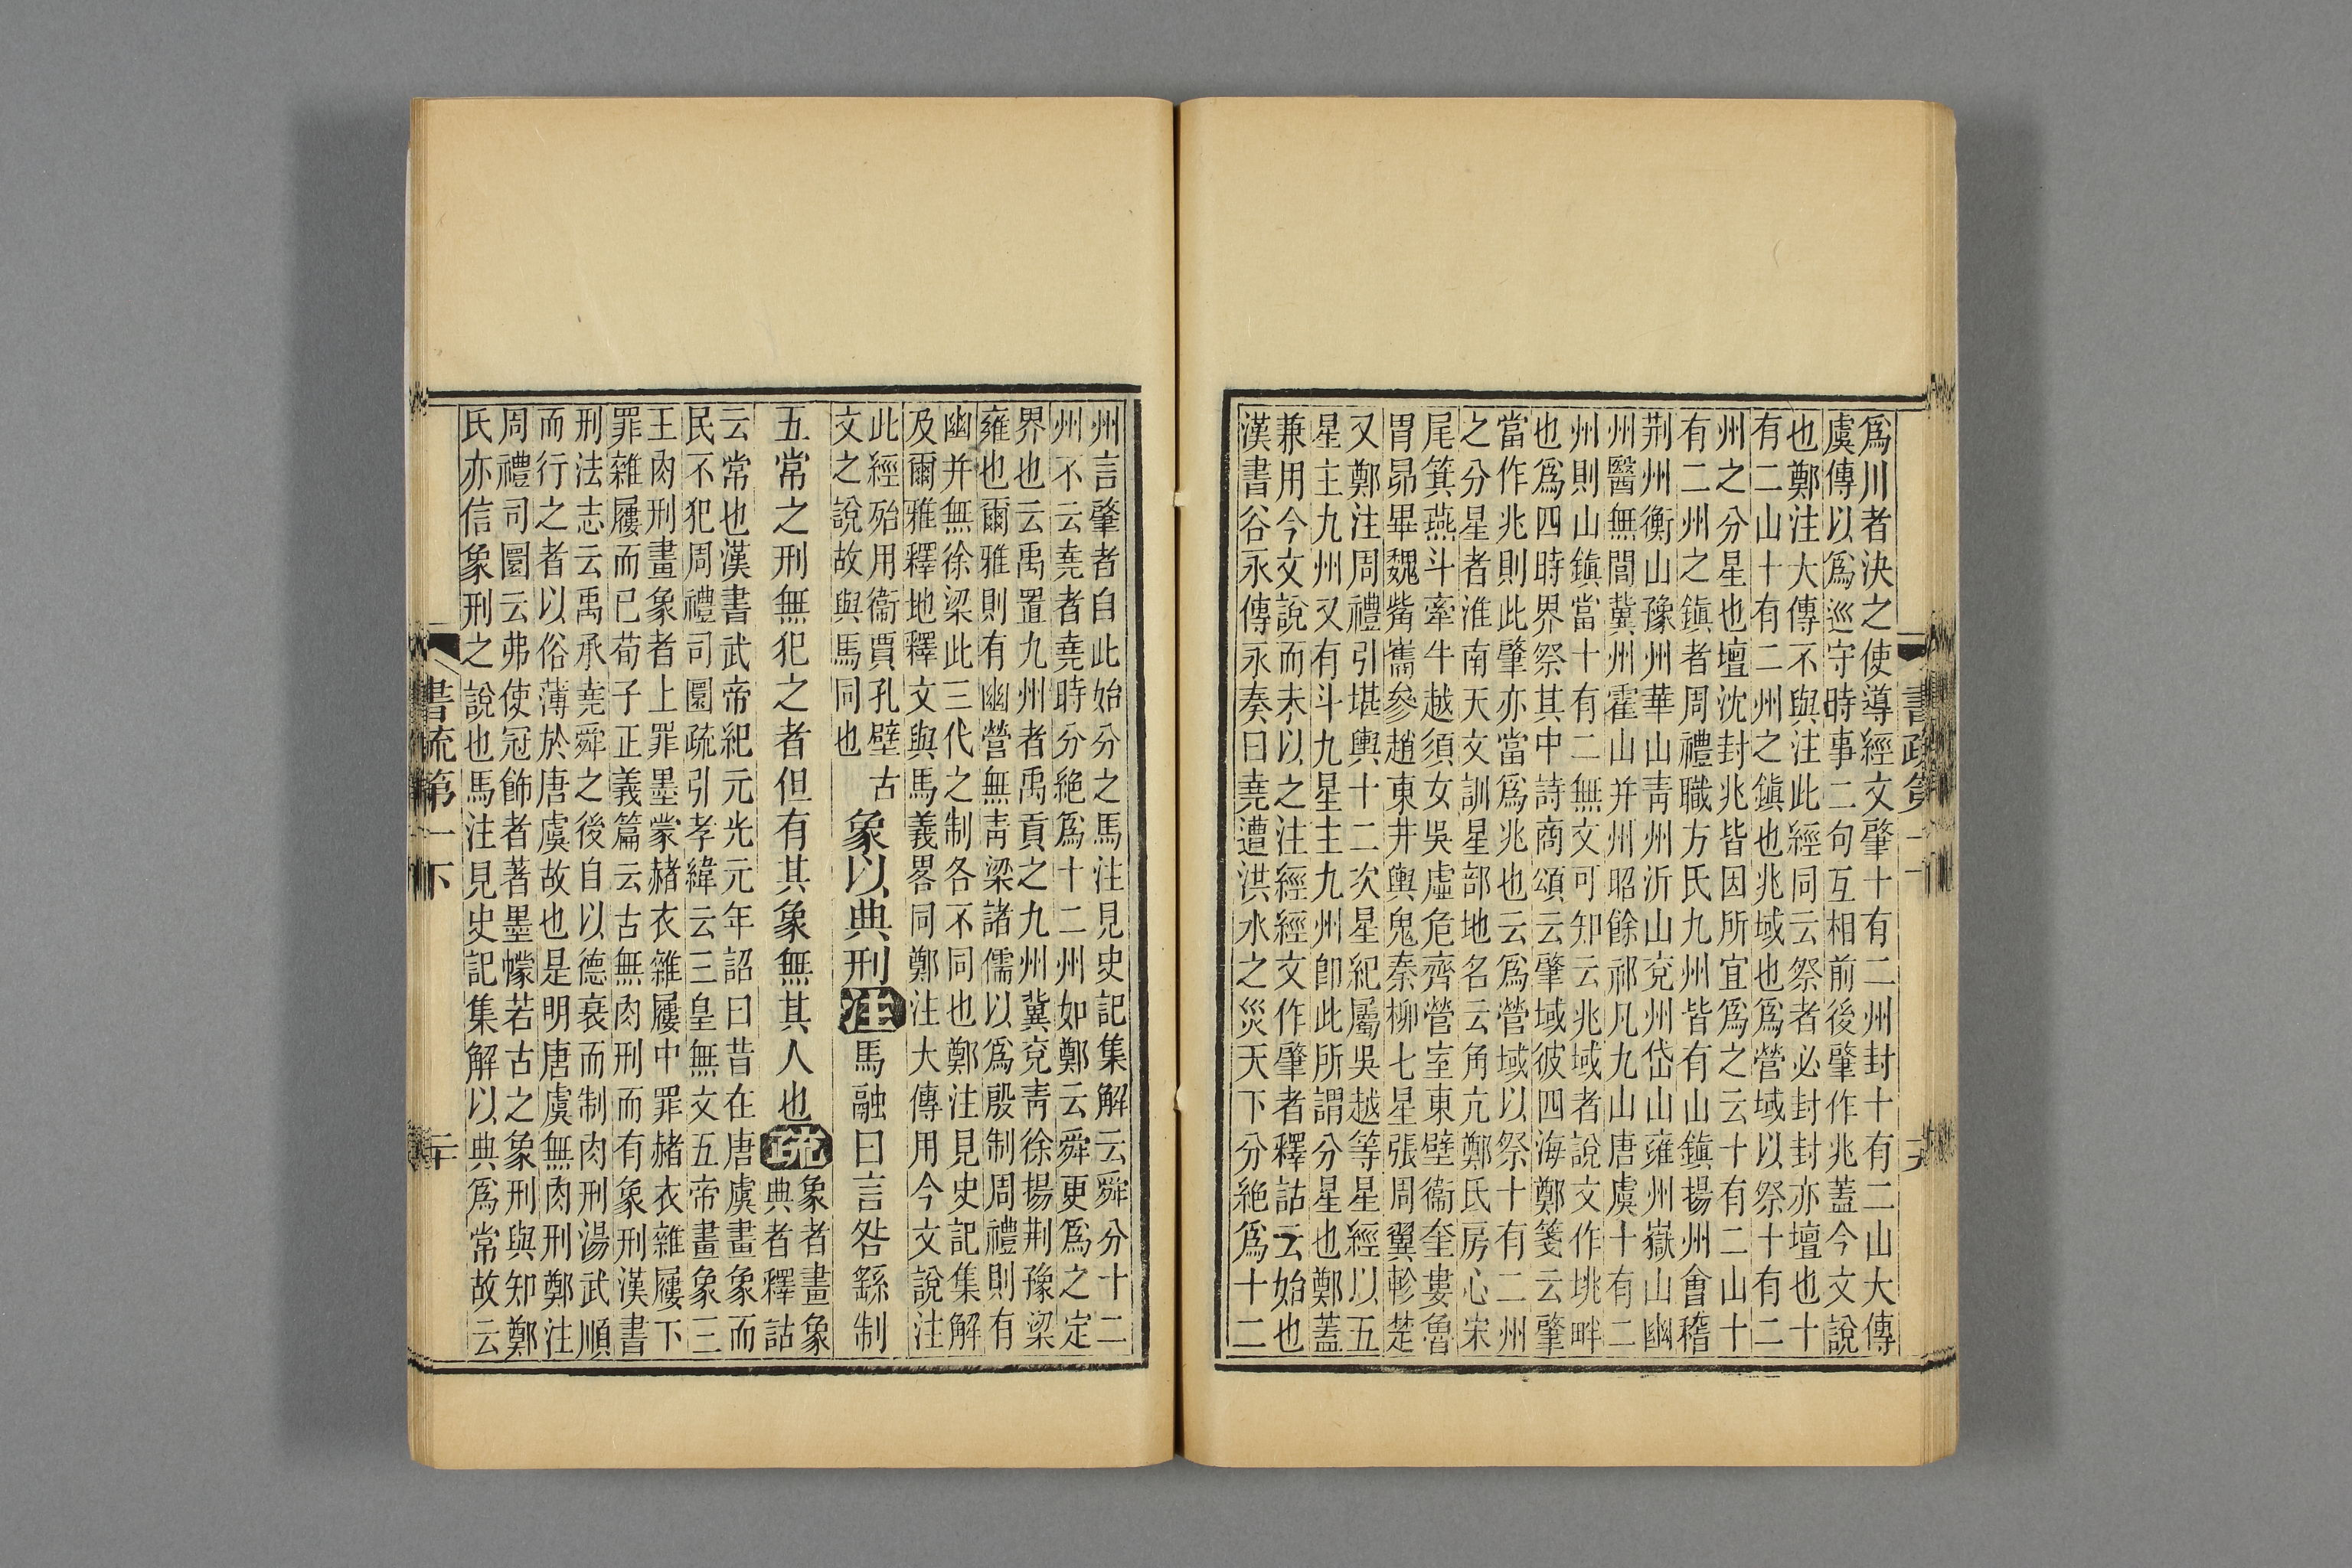 爲川者決之使導經文肇十有二州封十有二山大傳
虞傳以爲巡守時事二句互相前後肇作兆蓋今文說
也鄭注大傳不與注此經同云祭者必封封亦壇也十
有二山十有二州之鎮也兆域也爲營域以祭十有二
州之分星也壇沈封兆皆因所宜爲之云十有二山十
有二州之鎮者周禮職方氏九州皆有山鎮揚州會稽
荆州衡山豫州華山青州沂山兗州岱山雍州嶽山幽
州醫無閭冀州霍山并州昭餘祁凡九山唐虞十有二
州則山鎮當十有二無文可知云兆域者說文作垗畔
也爲四時界祭其中詩商頌云肇域彼四海鄭箋云肇
當作兆則此肇亦當爲兆也云爲營域以祭十有二州
之分星者淮南天文訓星部地名云角亢鄭氏房心宋
尾箕燕斗牽牛越須女吳虛危齊營室東壁衞奎婁魯
胃昴畢魏觜巂參趙東井輿鬼秦柳七星張周翼軫楚
又鄭注周禮引堪輿十二次星紀屬吳越等星經以五
星主九州又有斗九星主九州卽此所謂分星也鄭蓋
兼用今文說而未以之注經經文作肇者釋詁云始也
漢書谷永傳永奏曰堯遭洪水之災天下分絕爲十二
州言肇者自此始分之馬注見史記集解云舜分十二
州不云堯者堯時分絕爲十二州如鄭云舜更爲之定
界也云禹置九州者禹貢之九州冀兗青徐揚荆豫梁
雍也爾雅則有幽營無青梁諸儒以爲殷制周禮則有
幽并無徐梁此三代之制各不同也鄭注見史記集解
及爾雅釋地釋文與馬義畧同鄭注大傳用今文說注
此經殆用衞賈孔壁古
文之說故與馬同也
象以典刑注馬融曰言咎繇制
五常之刑無犯之者但有其象無其人也疏
象者畫象
典者釋詁
云常也漢書武帝紀元光元年詔曰昔在唐虞畫象而
民不犯周禮司圜疏引孝緯云三皇無文五帝畫象三
王肉刑畫象者上罪墨蒙赭衣雜屨中罪赭衣雜屨下
罪雜屨而已荀子正義篇云古無肉刑而有象刑漢書
刑法志云禹承堯舜之後自以德衰而制肉刑湯武順
而行之者以俗薄於唐虞故也是明唐虞無肉刑鄭注
周禮司圜云弗使冠飾者著墨幪若古之象刑與知鄭
氏亦信象刑之說也馬注見史記集解以典爲常故云
書疏第一下